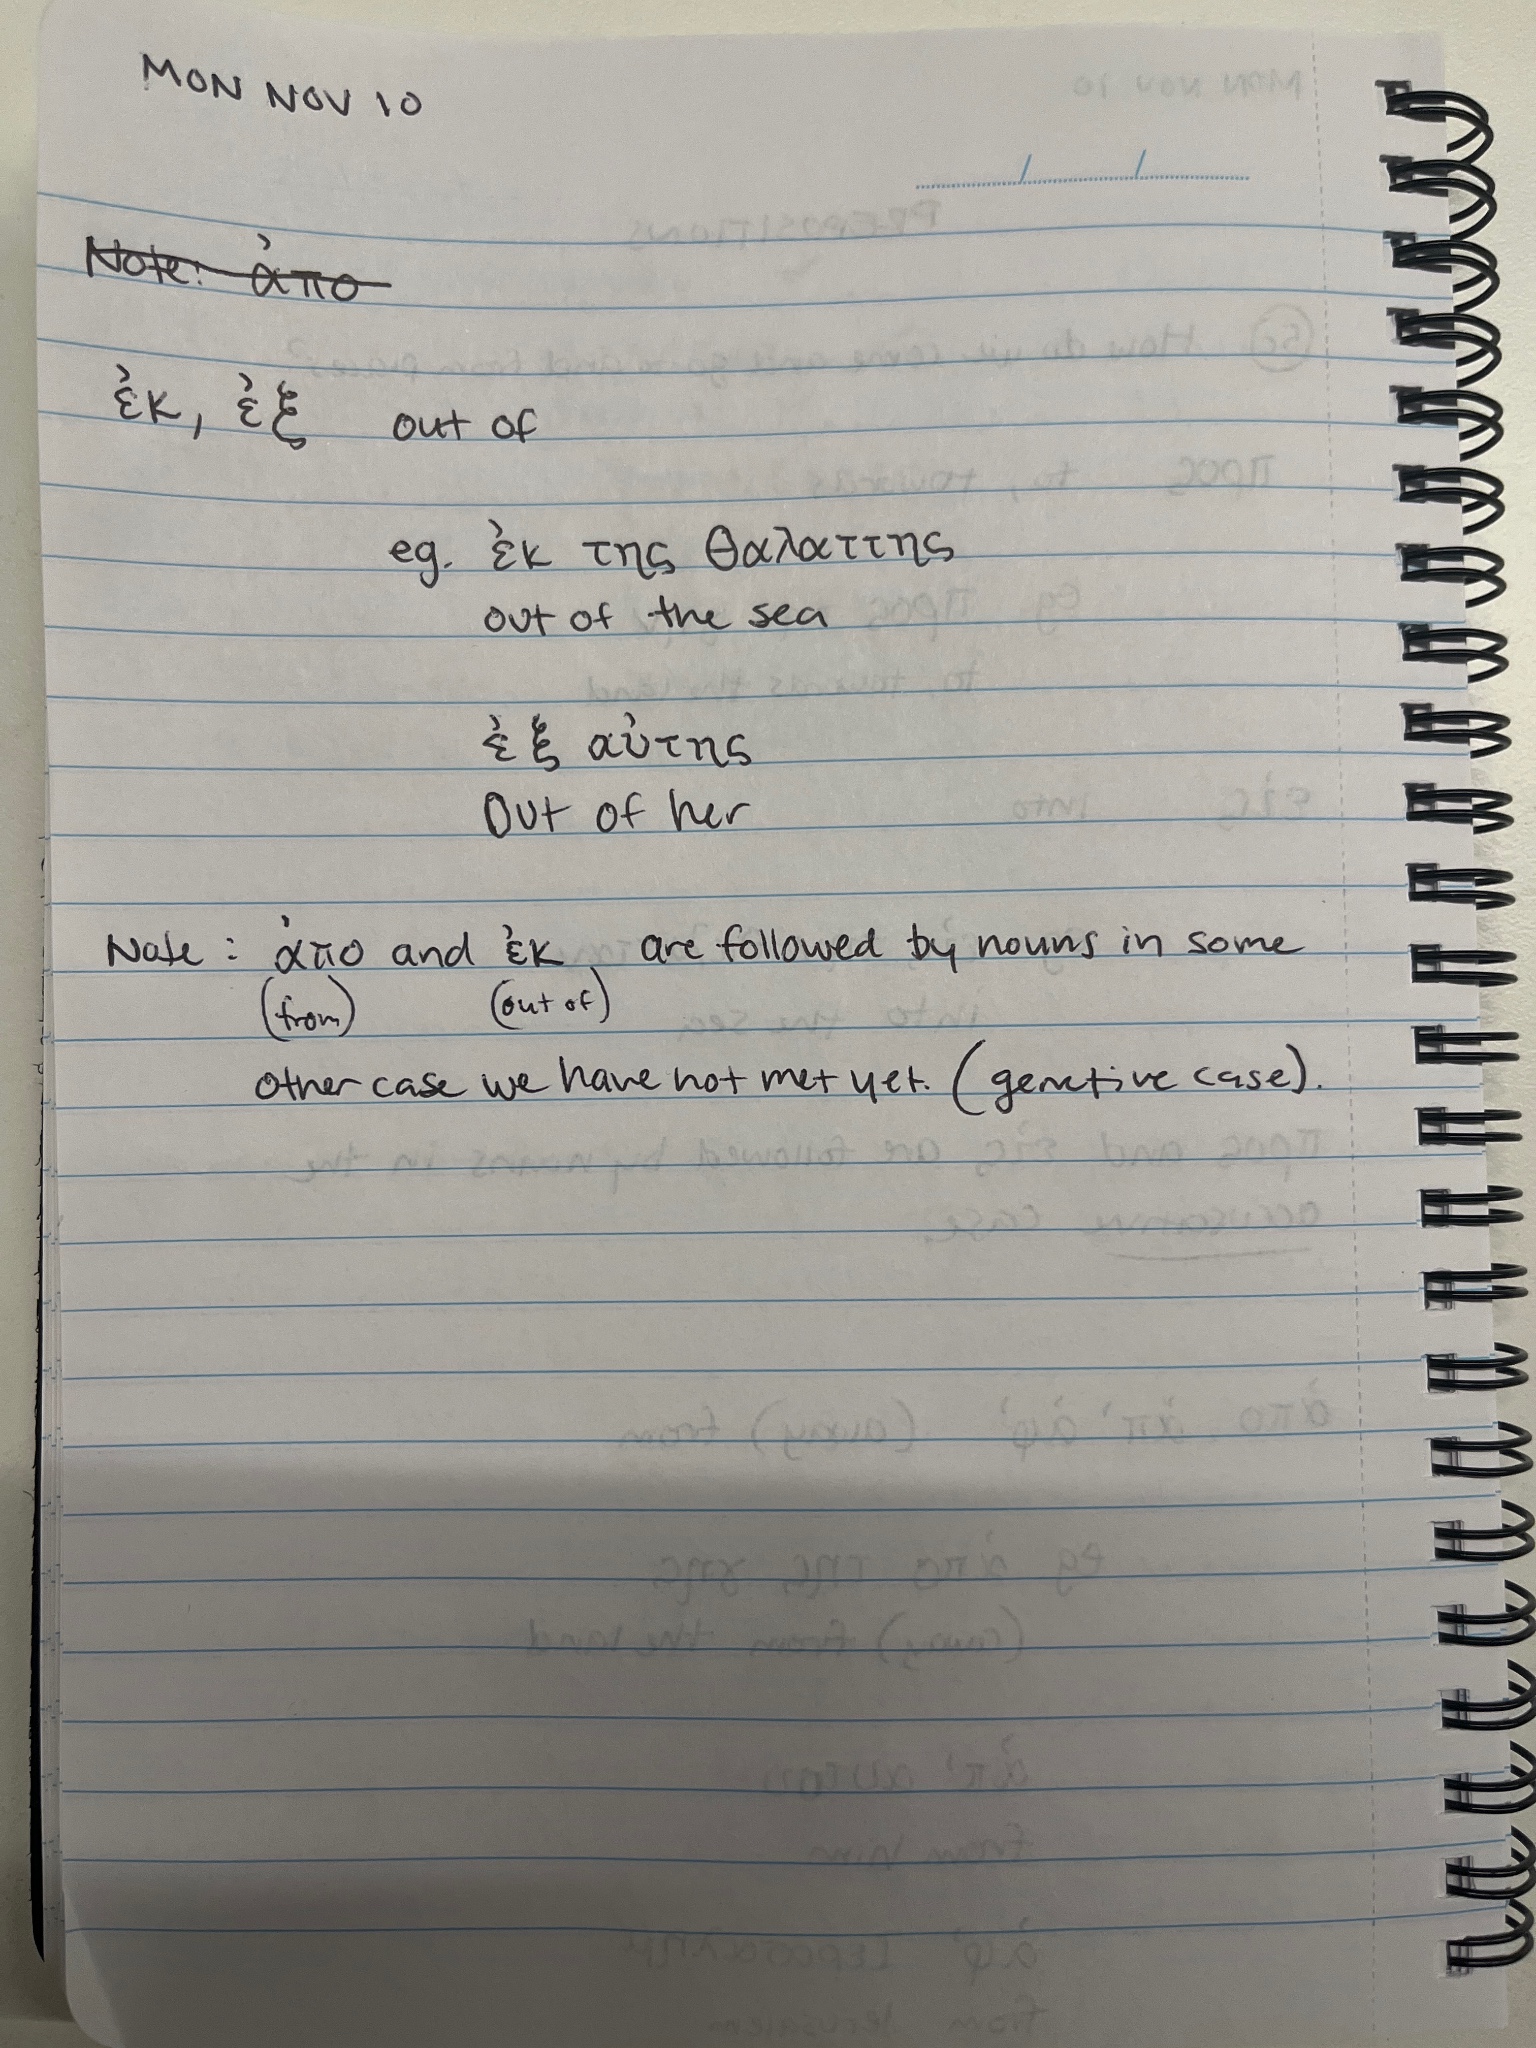 MON NOV 10
Note: ἀπο
ἐκ, ἐξ out of
eg. ἐκ της θαλαττης
out of the sea
ἐξ αὐτης
Out of her
Note: ἀπο and ἐκ are followed by nouns in some
(from) (out of)
other case we have not met yet. (genetive case).